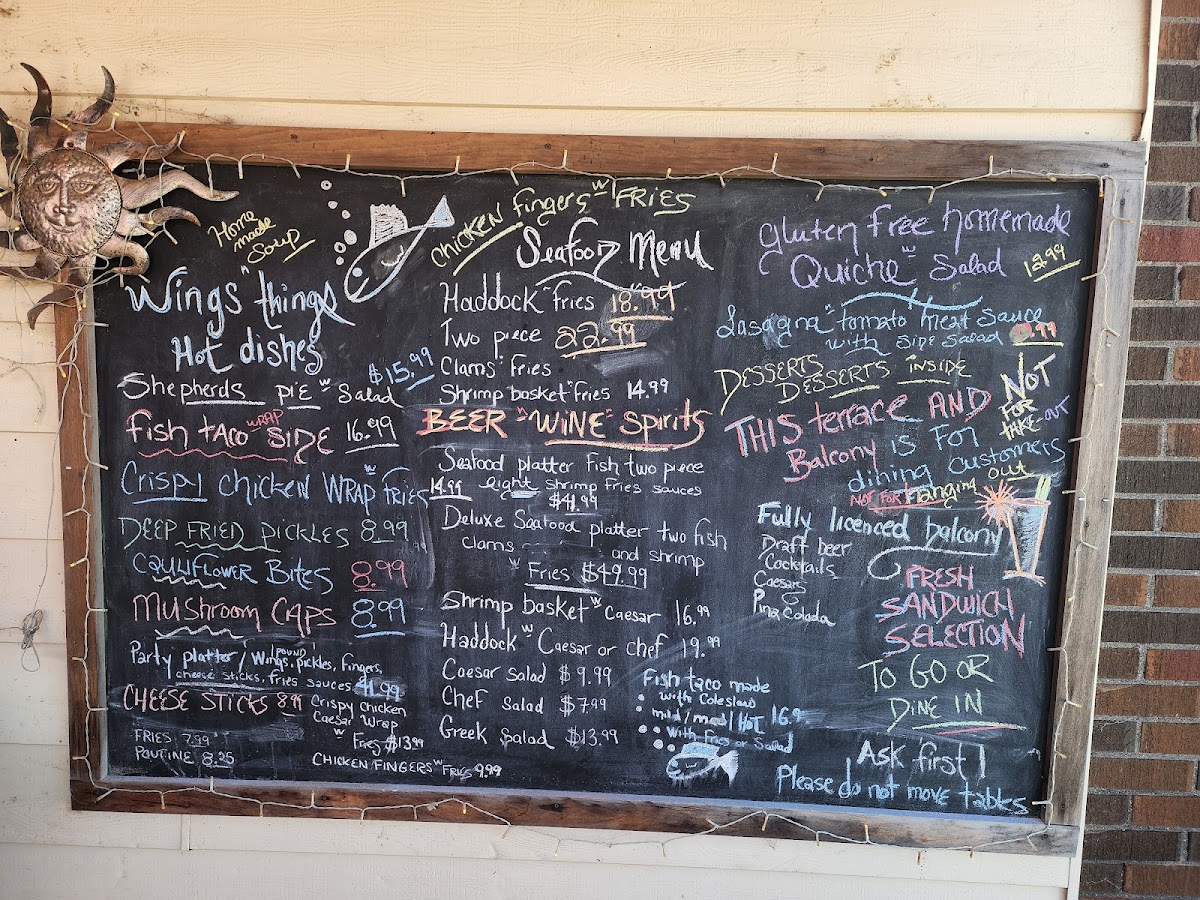 Home
made
Soup
Wings "things
Hot dishes
Shepherds pie w Salad $15.99
fish taco WRAP SIDE 16.99
Crispy chicken WRAP w fries 14.99
DEEP FRIED pickles 8.99
CAULIFLOWER Bites 8.99
Mushroom CAPS 8.99
Party platter / wings, POUND pickles, fingers,
cheese sticks, fries sauces
CHEESE STICKS 8.99
Crispy chicken
Caesar Wrap
w Fries $13.99
FRIES 7.99
POUTINE 8.25
CHICKEN FINGERS w FRIES 9.99
chicken fingers w FRIES
Seafood Menu
Haddock "fries 18.99
Two piece 22.99
Clams "Fries
Shrimp basket "Fries 14.99
BEER "WINE" Spirits
Seafood platter fish two piece
eight shrimp fries sauces
$41.99
Deluxe Seafood platter two fish
clams and shrimp
w Fries $49.99
Shrimp basket w Caesar 16.99
Haddock w Caesar or chef 19.99
Caesar salad $9.99
Chef salad $7.99
Greek Salad $13.99
Fish taco made
with Coleslaw
mild/med/Hot 16.9
with Fries or Salad
Gluten free homemade
Quiche w Salad 12.99
Lasagna "tomato meat sauce
with side salad
DESSERTS
DESSERTS inside
NOT
FOR
TAKE-OUT
THIS terrace AND
Balcony is For
dining customers
NOT FOR Hanging out
Fully licenced balcony
Draft beer
Cocktails
Caesars
Pina Colada
FRESH
SANDWICH
SELECTION
TO GO OR
DINE IN
Ask first!
Please do not move tables